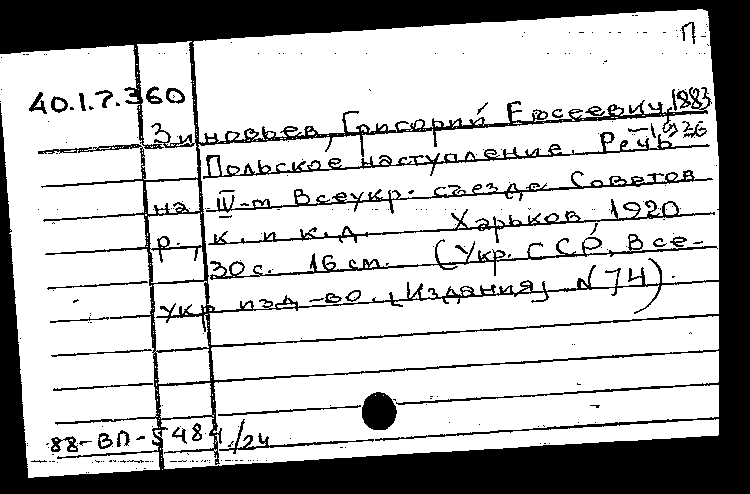 П
40.1.7.360
Зиновьев, Григорий Евсеевич, 1883
-1936
Польское наступление. Речь
на IV-м Всеукр. съезде Советов
р., к. и к.д. Харьков, 1920
30 с. 16 см. (Укр. ССР. Все-
укр изд-во. [Издания] N 74).
88-ВП-5484/24